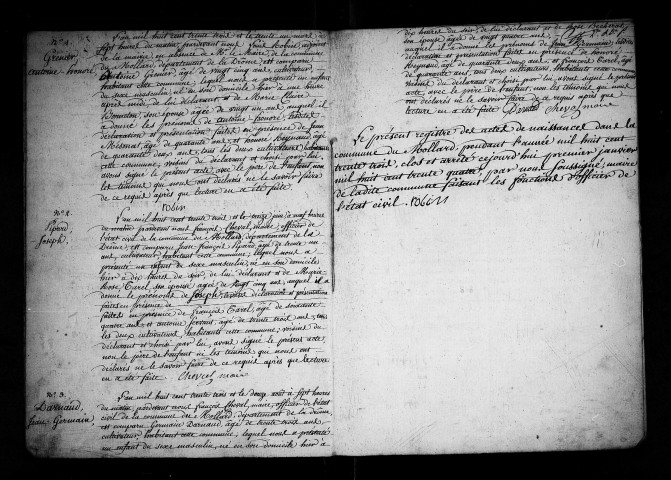 N.° 1.
Grenier,
antoine honoré.
L'an mil huit cent trente trois et le trente un mars à
sept heures du matin, pardevant nous
en absence de M. le Maire de la commune
du Mollard, département de la Drôme, est comparu
antoine Grenier, agé de vingt cinq ans, cultivateur
habitant cette commune, lequel nous a présenté un enfant
du sexe masculin, né en son domicile hier à une heure
après midi, de lui déclarant et de Marie Claire
son épouse agée de vingt un ans, auquel il
a donné les prénoms de antoine honoré, lesdites
déclaration et présentation faites en présence de Jean
agé de quarante ans et honoré Reynaud, agé
de quarante deux ans, tous les deux cultivateurs habitants
cette commune, voisins du déclarant et choisis par lui,
avons signé le présent acte avec le père de l'enfant, non
les témoins qui nous ont déclaré ne le savoir faire
de ce requis après que lecture en a été faite.
N.° 2.
Sipard,
Joseph.
L'an mil huit cent trente trois et le onze juin à neuf heures
du matin pardevant nous françois Chevol, maire, officier de
l'état civil de la commune du Mollard, département de la
Drôme, est comparu Jean françois Sipard, agé de trente un
ans, cultivateur, habitant cette commune, lequel nous a
présenté un enfant du sexe masculin, né en son domicile
hier à dix heures du soir, de lui déclarant et de Marie
Rose Tarel, son épouse agée de vingt cinq ans, auquel il a
donné le prénom de Joseph, lesdites déclaration et présentation
faites en présence de françois Tarel, agé de soixante
quatre ans et antoine Servant, agé de trente trois ans, tous
les deux cultivateurs habitants cette commune, voisins du
déclarant et choisis par lui, avons signé le présent acte,
non le père de l'enfant ni les témoins qui nous ont
déclaré ne le savoir faire de ce requis après que lecture
en a été faite. Chevol maire
N.° 3.
Darnaud,
Jean Germain.
L'an mil huit cent trente trois et le douze août à sept heures
du matin pardevant nous françois Chevol, maire, officier de l'état
civil de la commune du Mollard, département de la Drôme
est comparu Germain Darnaud, agé de trente trois ans,
cultivateur, habitant cette commune, lequel nous a présenté
un enfant du sexe masculin, né en son domicile hier à
dix heures du soir, de lui déclarant et de
son épouse agée de vingt quatre ans,
auquel il a donné les prénoms de Jean Germain, lesdites
déclaration et présentation faites en présence de honoré
Reynaud, agé de quarante deux ans, et françois Tarel, agé
de quarante ans, tous deux cultivateurs, habitants cette commune
voisins du déclarant et choisis par lui, avons signé le présent
acte, avec le père de l'enfant, non les témoins qui nous
ont déclaré ne le savoir faire de ce requis après que
lecture en a été faite Darnaud Chevol maire
Le présent registre des actes de naissances dans la
commune du Mollard, pendant l'année mil huit cent
trente trois, clos et arrêté cejourd'hui premier janvier
mil huit cent trente quatre, par nous soussigné, maire
de ladite commune faisant les fonctions d'officier de
l'état civil.